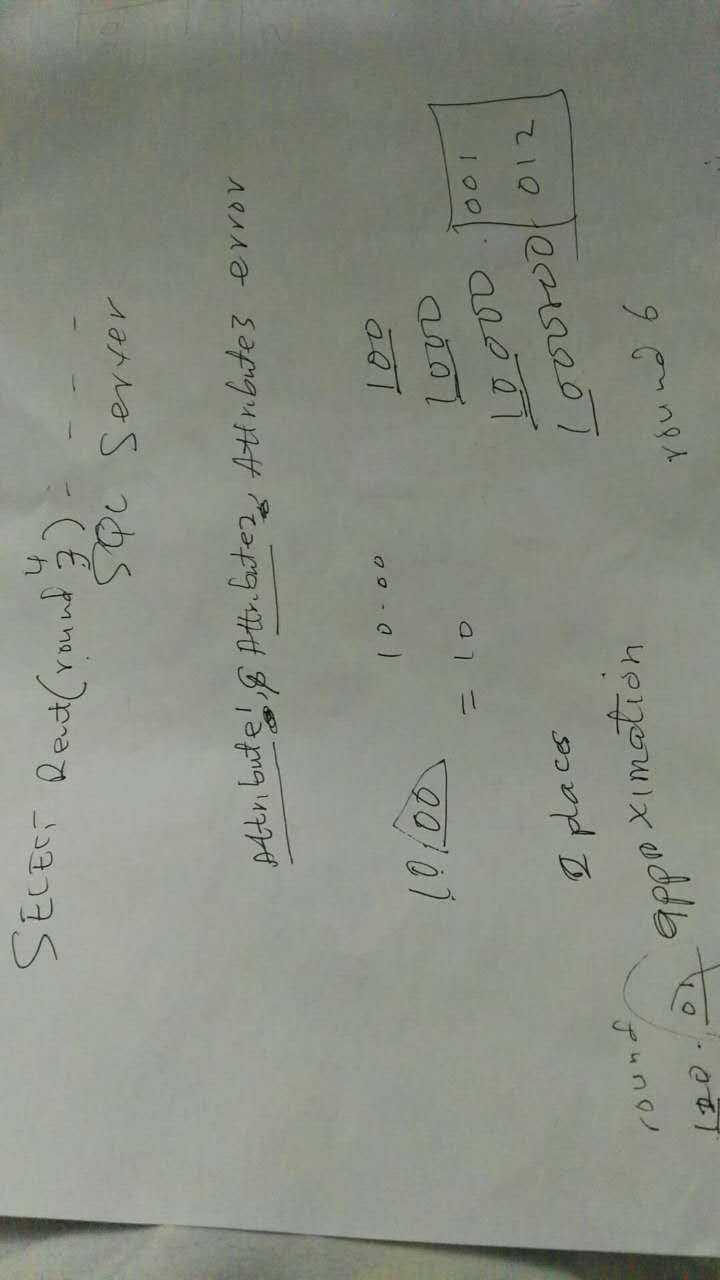 SELECT Rent(round 4 7) - - - -
SQL Server
Attribute1, & Attribute2, Attribute3 error
10.00 10.00 100
= 10 1000
10 000 . 001
2 places 012
approximation round 6
round
.01